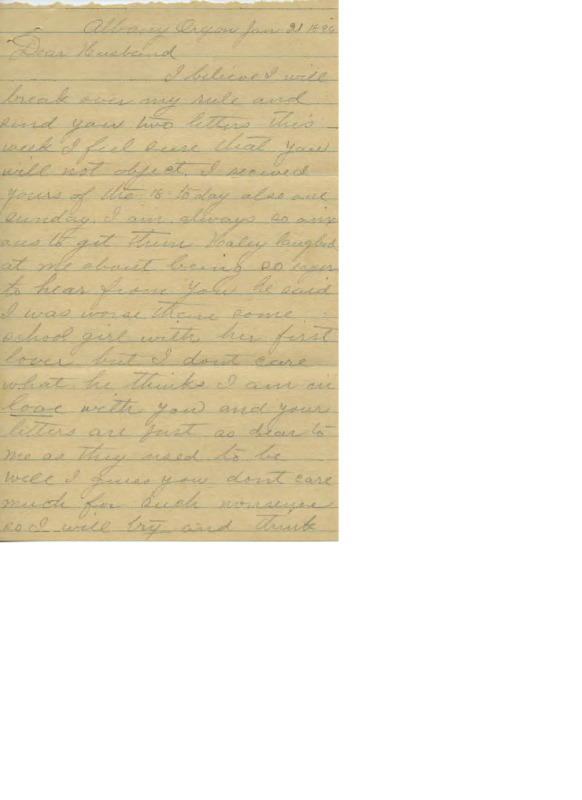 Albany Oregon Jan 21 189
Dear Husband
I believe I will
break over my rule and
send you two letters this
week I feel sure that you
will not object. I recived
yours of the 16 to day also one
sunday. I am always so anx
ous to get them laughed
at me about being so eger
to hear from you he said
I was worse than some
school girl with her first
lover but I dont care
what he thinks I am in
love with you and your
letters are just as dear to
me as they used to be
well I guess you dont care
much for such nonsense
so I will try and think